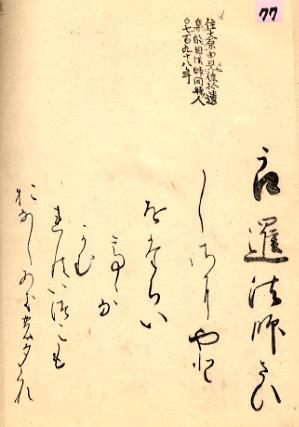 77
住大原由見後拾遺
集能因法師同時人
七百九十八年
良暹法師さひ
しさにやと
をたちい
てゝな
かむ
れはいつこも
おなしあき乃夕くれ